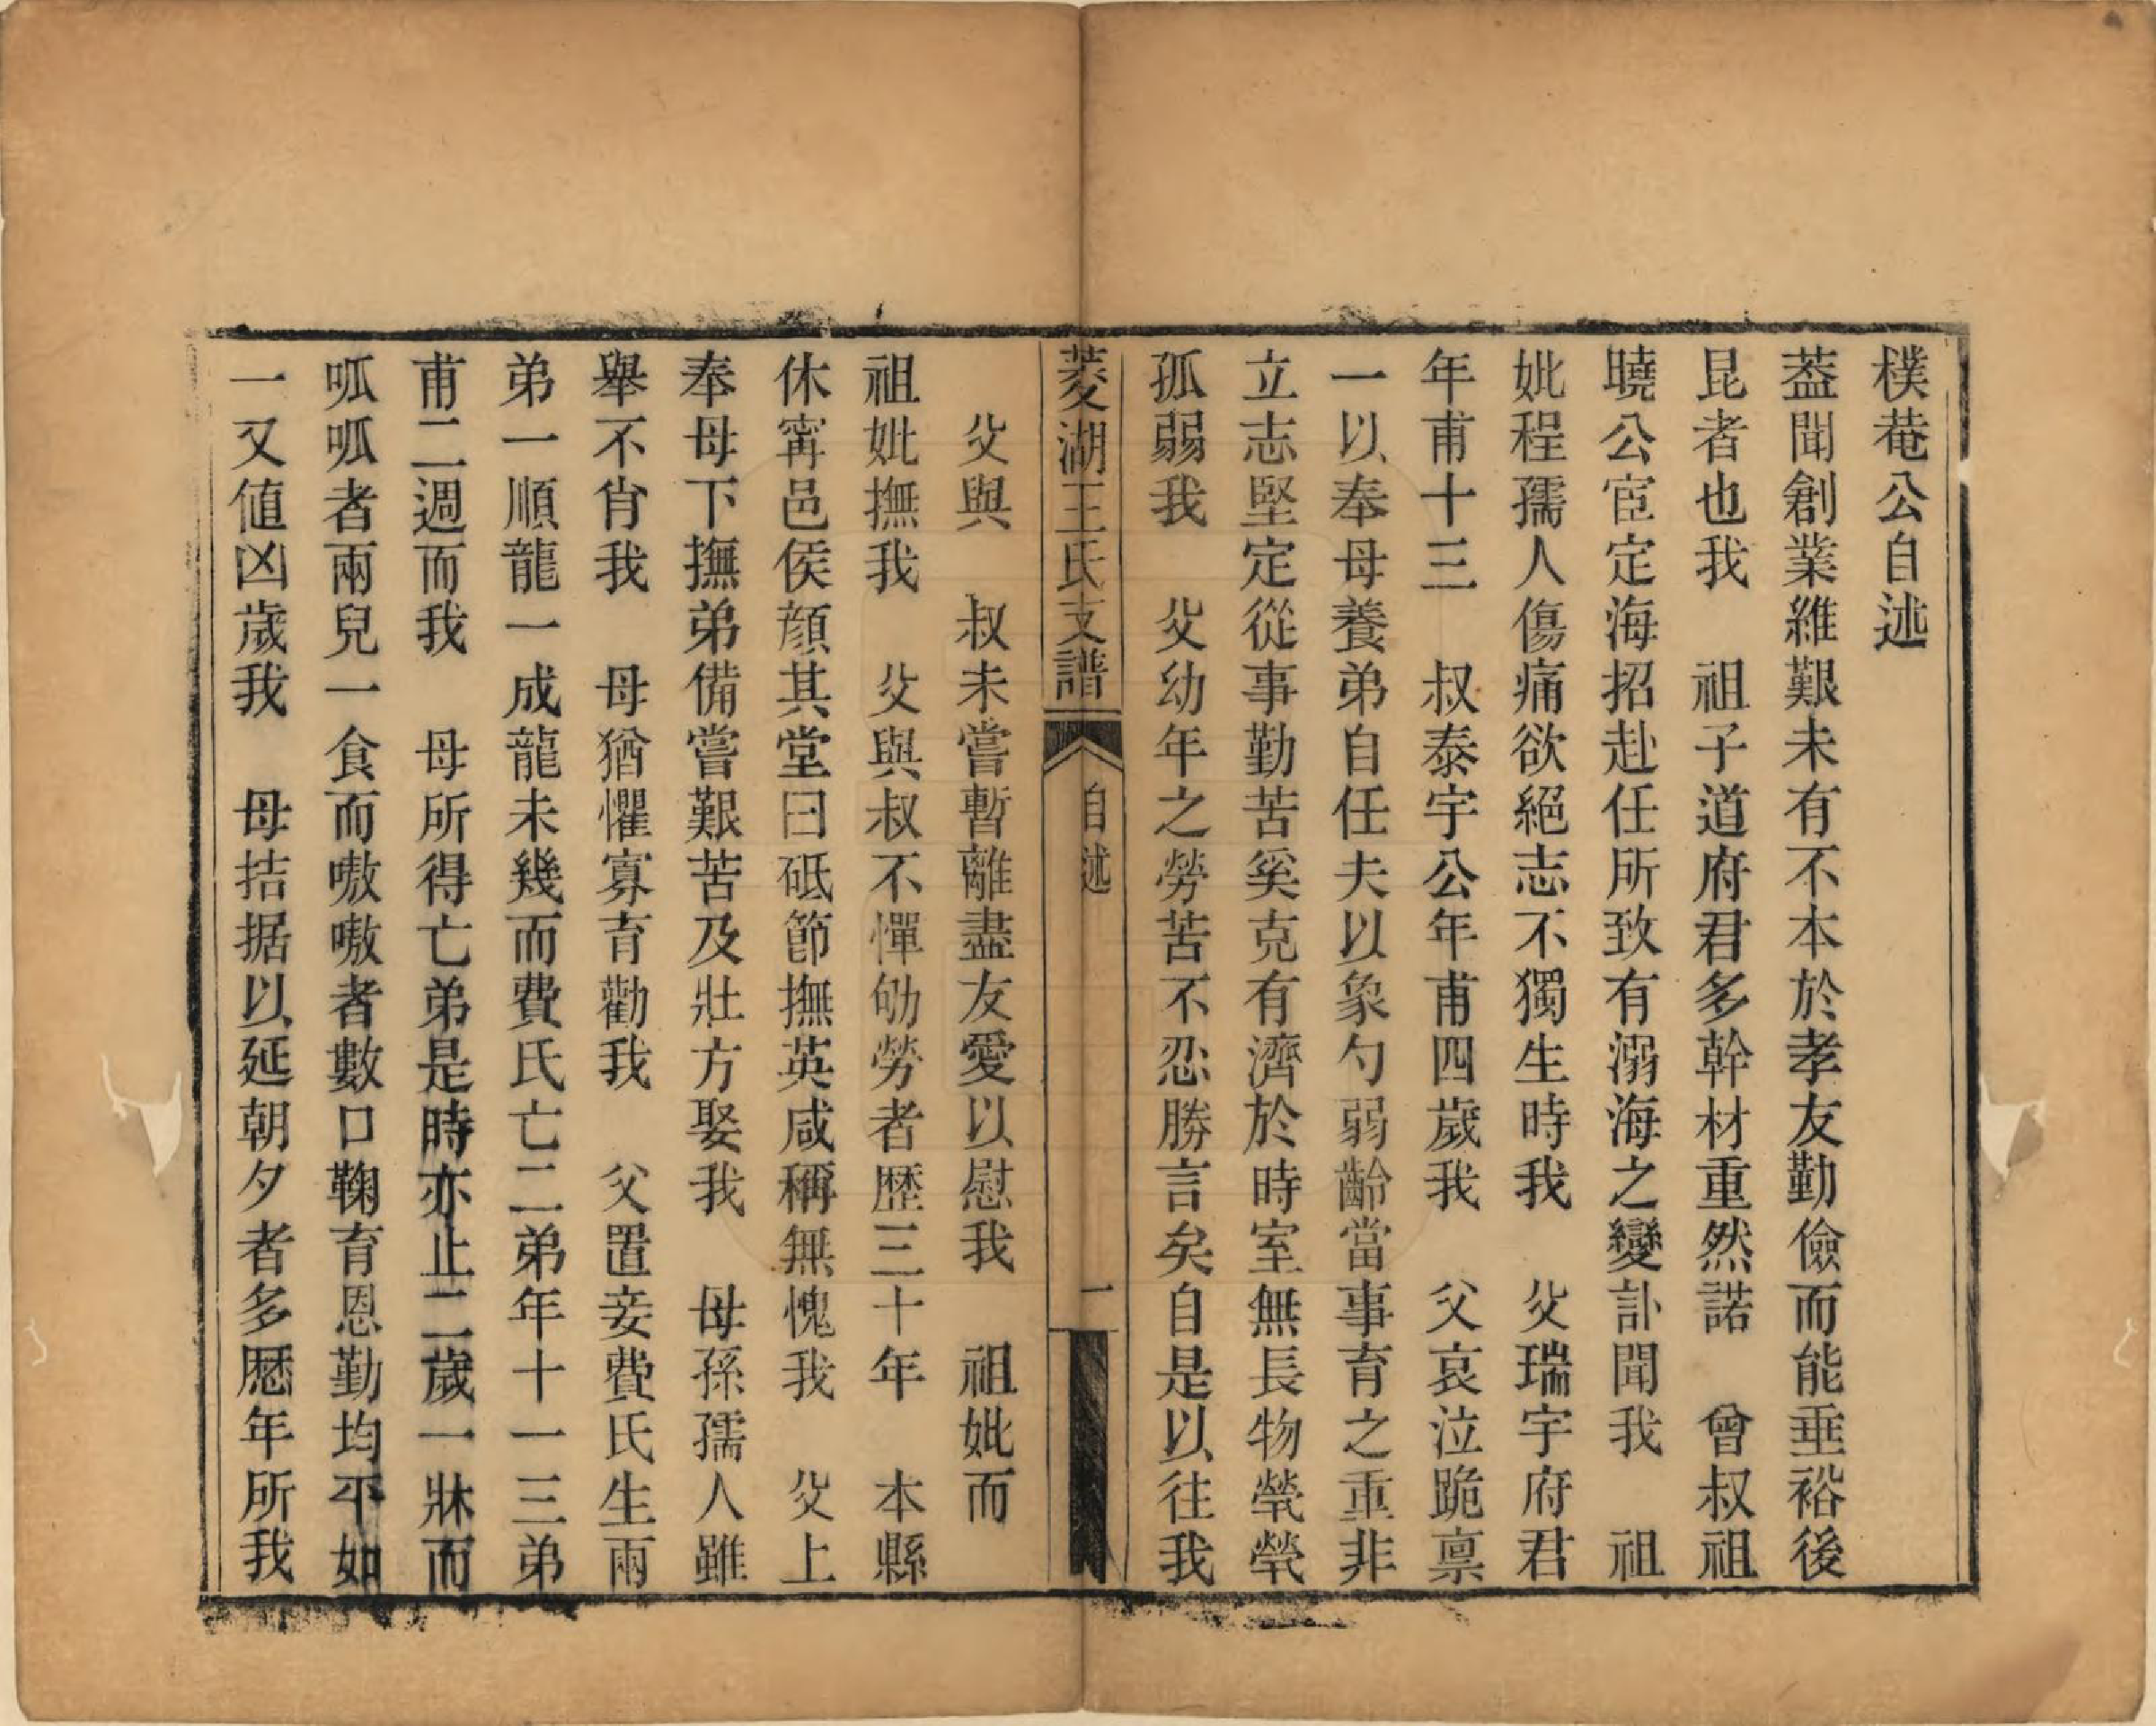 樸菴公自述
葢聞創業維艱未有不本於孝友勤儉而能垂裕後
昆者也我　祖子道府君多幹材重然諾　曾叔祖
曉公宦定海招赴任所致有溺海之變訃聞我　祖
妣程孺人傷痛欲絕志不獨生時我　父瑞宇府君
年甫十三　叔泰宇公年甫四歲我　父哀泣跪禀
一以奉母養弟自任夫以象勺弱齡當事育之重非
立志堅定從事勤苦奚克有濟於時室無長物煢煢
孤弱我　父幼年之勞苦不忍勝言矣自是以往我
菱湖王氏支譜　自述　一
父與　叔未嘗暫離盡友愛以慰我　祖妣而
祖妣撫我　父與叔不憚劬勞者歷三十年　本縣
休甯邑侯顏其堂曰砥節撫英咸稱無愧我　父上
奉母下撫弟備嘗艱苦及壯方娶我　母孫孺人雖
舉不肖我　母猶懼寡育勸我　父置妾費氏生兩
弟一順龍一成龍未幾而費氏亡二弟年十一三弟
甫二週而我　母所得亡弟是時亦止二歲一牀而
呱呱者兩兒一食而嗷嗷者數口鞠育恩勤均平如
一又値凶歲我　母拮据以延朝夕者多歷年所我